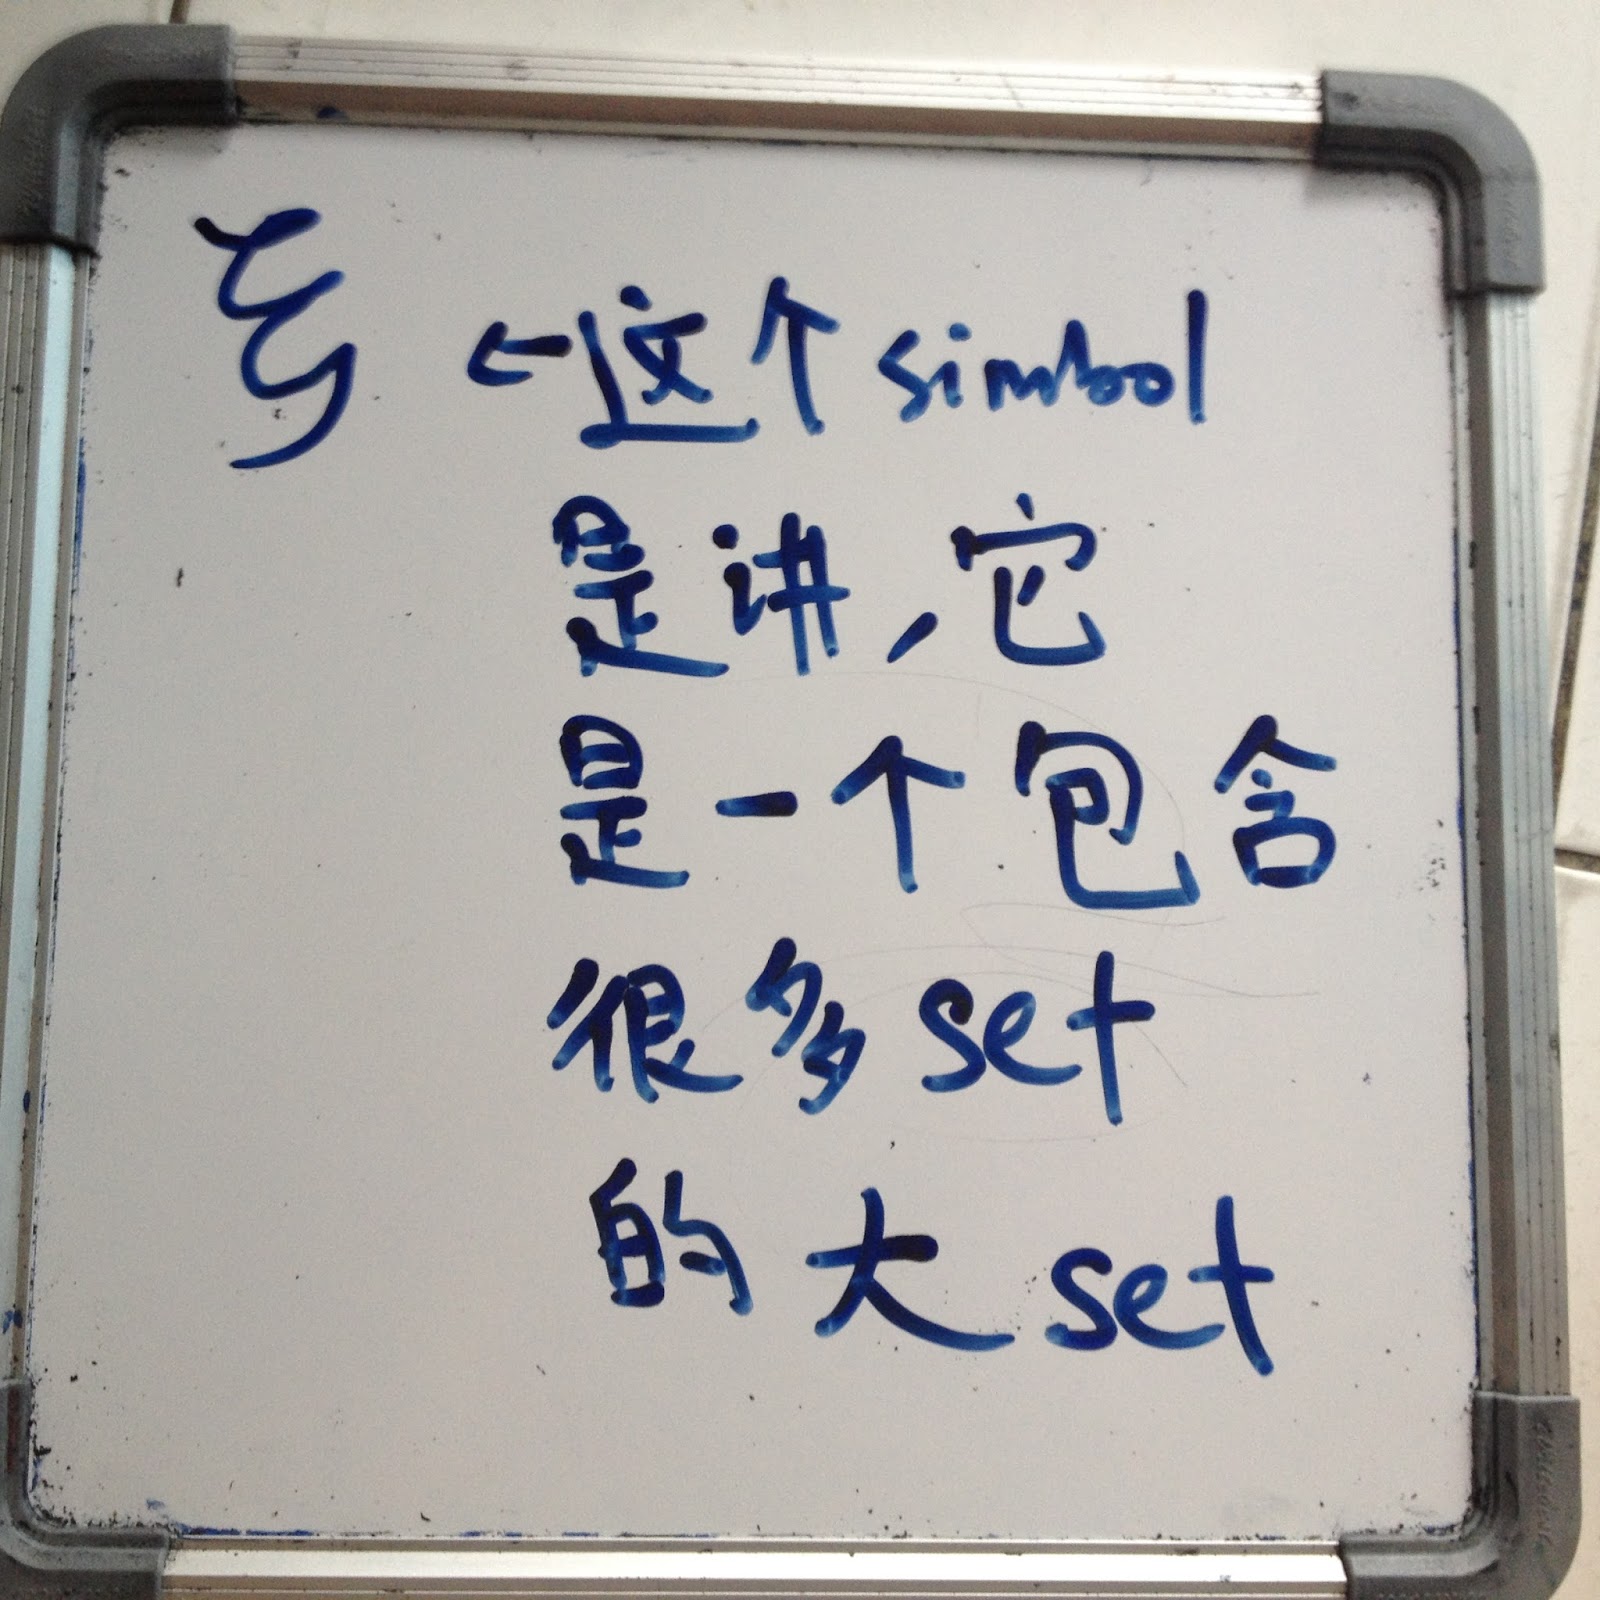 ξ ←这个simbol
是讲，它
是一个包含
很多set
的大set